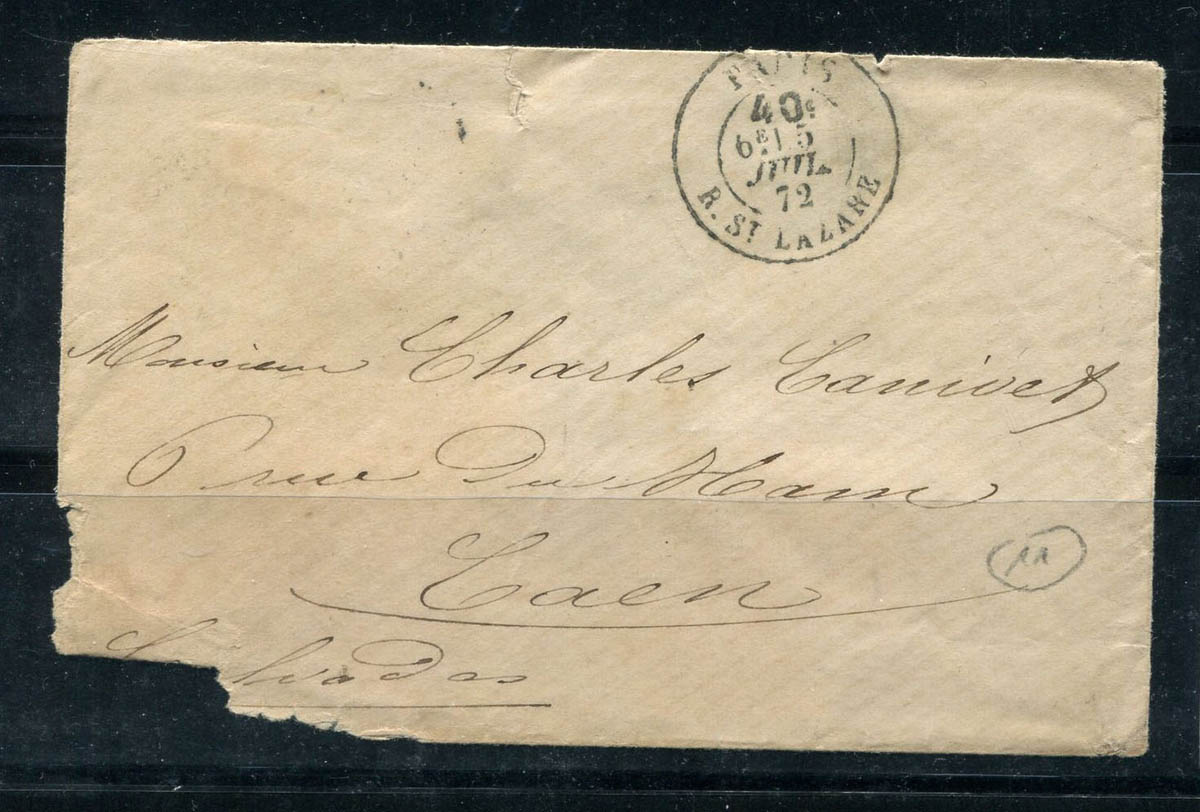 PARIS
40c
6E 15
JUIL
72
R. ST LAZARE
Monsieur Charles Canivet
6 rue Du Ham
Caen